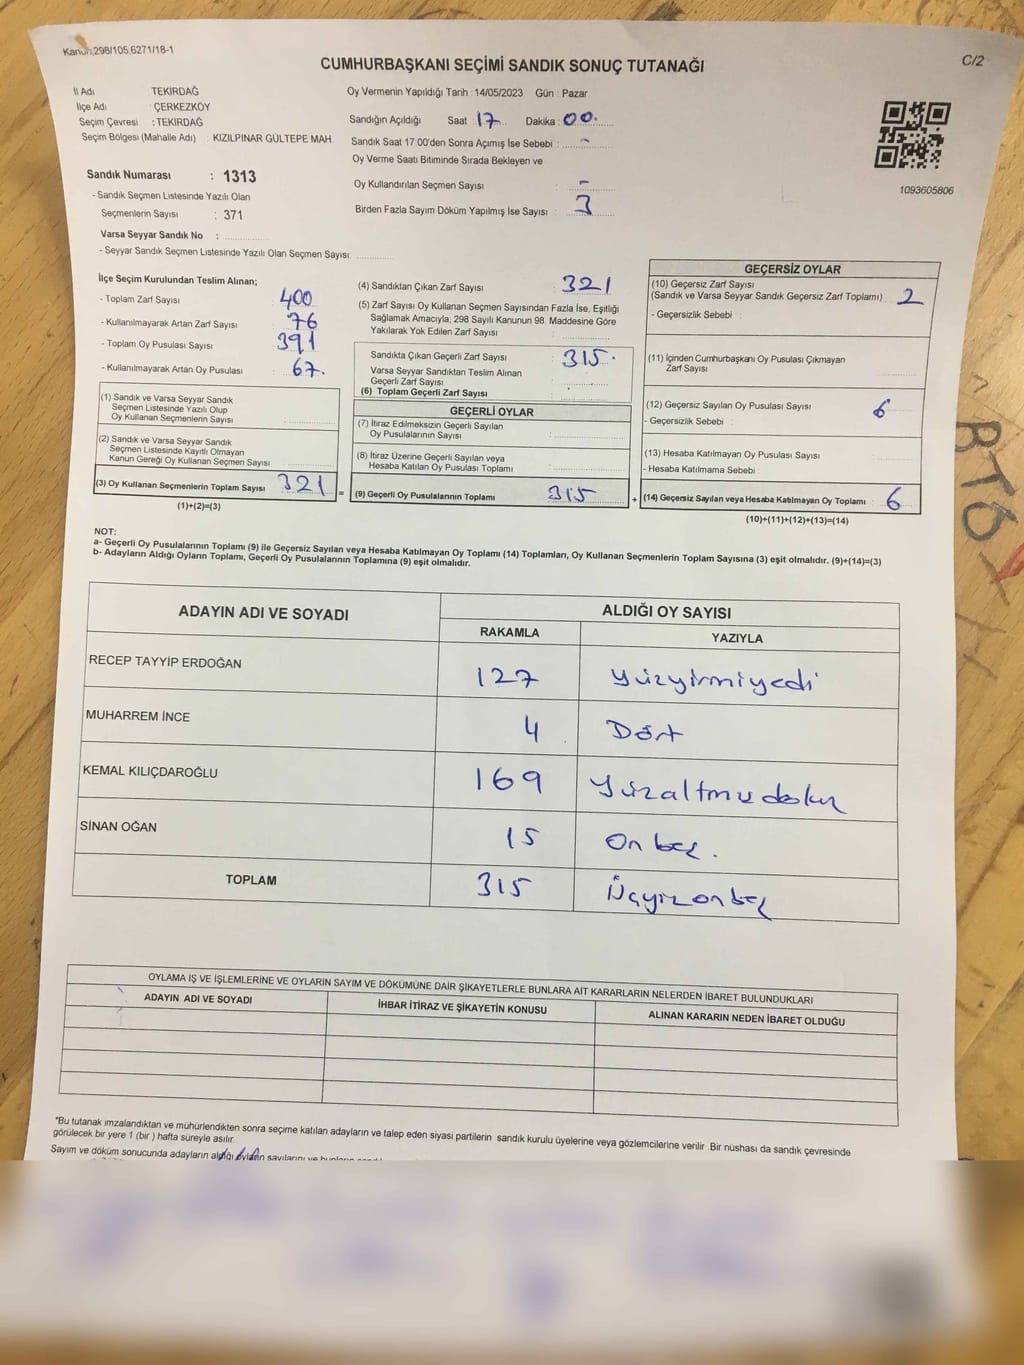 Kanun:298/105,6271/18-1
C/2
CUMHURBAŞKANI SEÇİMİ SANDIK SONUÇ TUTANAĞI
İl Adı TEKİRDAĞ
İlçe Adı : ÇERKEZKÖY
Seçim Çevresi : TEKİRDAĞ
Seçim Bölgesi (Mahalle Adı) : KIZILPINAR GÜLTEPE MAH.
Sandık Numarası : 1313
- Sandık Seçmen Listesinde Yazılı Olan
Seçmenlerin Sayısı : 371
Varsa Seyyar Sandık No :
- Seyyar Sandık Seçmen Listesinde Yazılı Olan Seçmen Sayısı:
Oy Vermenin Yapıldığı Tarih : 14/05/2023 Gün : Pazar
Sandığın Açıldığı Saat : 17 Dakika : 00.
Sandık Saat 17:00'den Sonra Açımış İse Sebebi : -
Oy Verme Saati Bitiminde Sırada Bekleyen ve
Oy Kullandırılan Seçmen Sayısı : -
Birden Fazla Sayım Döküm Yapılmış İse Sayısı : 3
1093605806
İlçe Seçim Kurulundan Teslim Alınan;
- Toplam Zarf Sayısı : 400
- Kullanılmayarak Artan Zarf Sayısı : 76
- Toplam Oy Pusulası Sayısı : 391
- Kullanılmayarak Artan Oy Pusulası : 67.
(1) Sandık ve Varsa Seyyar Sandık
Seçmen Listesinde Yazılı Olup
Oy Kullanan Seçmenlerin Sayısı :
(2) Sandık ve Varsa Seyyar Sandık
Seçmen Listesinde Kayıtlı Olmayan
Kanun Gereği Oy Kullanan Seçmen Sayısı
(3) Oy Kullanan Seçmenlerin Toplam Sayısı 321
(1)+(2)=(3)
=
(4) Sandıktan Çıkan Zarf Sayısı : 321
(5) Zarf Sayısı Oy Kullanan Seçmen Sayısından Fazla İse, Eşitliği
Sağlamak Amacıyla; 298 Sayılı Kanunun 98. Maddesine Göre
Yakılarak Yok Edilen Zarf Sayısı
Sandıkta Çıkan Geçerli Zarf Sayısı : 315.
Varsa Seyyar Sandıktan Teslim Alınan
Geçerli Zarf Sayısı
(6) Toplam Geçerli Zarf Sayısı
GEÇERLİ OYLAR
(7) İtiraz Edilmeksizin Geçerli Sayılan
Oy Pusulalarının Sayısı :
(8) İtiraz Üzerine Geçerli Sayılan veya
Hesaba Katılan Oy Pusulası Toplamı :
(9) Geçerli Oy Pusulalarının Toplamı 315
+
GEÇERSİZ OYLAR
(10) Geçersiz Zarf Sayısı
(Sandık ve Varsa Seyyar Sandık Geçersiz Zarf Toplamı) : 2
- Geçersizlik Sebebi :
(11) İçinden Cumhurbaşkanı Oy Pusulası Çıkmayan
Zarf Sayısı
(12) Geçersiz Sayılan Oy Pusulası Sayısı 6
- Geçersizlik Sebebi :
(13) Hesaba Katılmayan Oy Pusulası Sayısı
- Hesaba Katılmama Sebebi :
(14) Geçersiz Sayılan veya Hesaba Katılmayan Oy Toplamı : 6
(10)+(11)+(12)+(13)=(14)
NOT:
a- Geçerli Oy Pusulalarının Toplamı (9) ile Geçersiz Sayılan veya Hesaba Katılmayan Oy Toplamı (14) Toplamları, Oy Kullanan Seçmenlerin Toplam Sayısına (3) eşit olmalıdır. (9)+(14)=(3)
b- Adayların Aldığı Oyların Toplamı, Geçerli Oy Pusulalarının Toplamına (9) eşit olmalıdır.
ADAYIN ADI VE SOYADI
ALDIĞI OY SAYISI
RAKAMLA YAZIYLA
RECEP TAYYİP ERDOĞAN 127 Yüzyirmiyedi
MUHARREM İNCE 4 Dört
KEMAL KILIÇDAROĞLU 169
SİNAN OĞAN 15 On beş.
TOPLAM 315 Üçyüzonbeş
OYLAMA İŞ VE İŞLEMLERİNE VE OYLARIN SAYIM VE DÖKÜMÜNE DAİR ŞİKAYETLERLE BUNLARA AİT KARARLARIN NELERDEN İBARET BULUNDUKLARI
ADAYIN ADI VE SOYADI İHBAR İTİRAZ VE ŞİKAYETİN KONUSU ALINAN KARARIN NEDEN İBARET OLDUĞU
*Bu tutanak imzalandıktan ve mühürlendikten sonra seçime katılan adayların ve talep eden siyasi partilerin sandık kurulu üyelerine veya gözlemcilerine verilir .Bir nüshası da sandık çevresinde
görülecek bir yere 1 (bir ) hafta süreyle asılır.
Sayım ve döküm sonucunda adayların aldığı oyların sayılarını ve